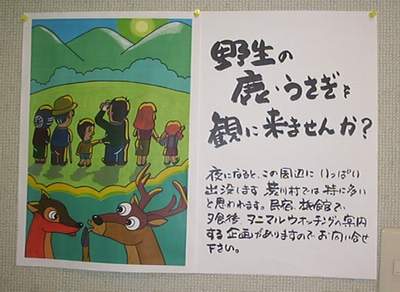 野生の
鹿・うさぎを
観に来ませんか?
夜になると、この周辺に いっぱい
出没します 芳川村では 特に多い
と思われます。民宿、旅館で、
夕食後 アニマルウオッチングの案内
する企画がありますので お問い合せ
下さい。